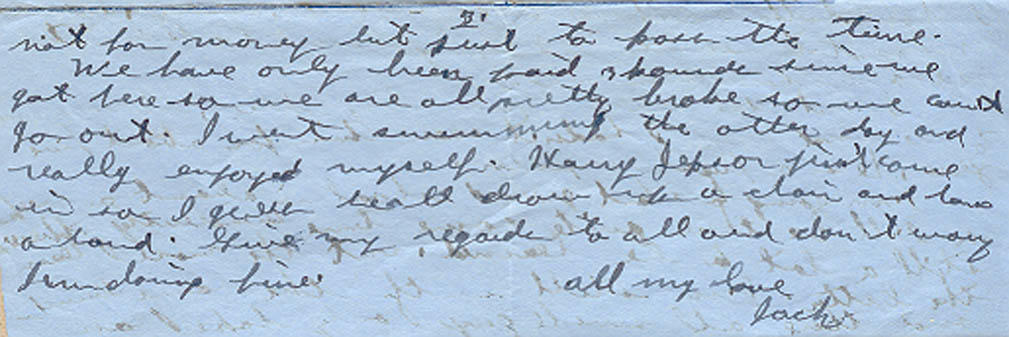 3.
not for money but just to pass the time.
We have only been paid 3 pounds since we
got here so we are all pretty broke so we can't
go out. I went swimming the other day and
really enjoyed myself. Harry Jepson just came
in so I guess he'll draw up a chair and have
a hand. Give my regards to all and don't worry
I'm doing fine.
all my love
Jack.